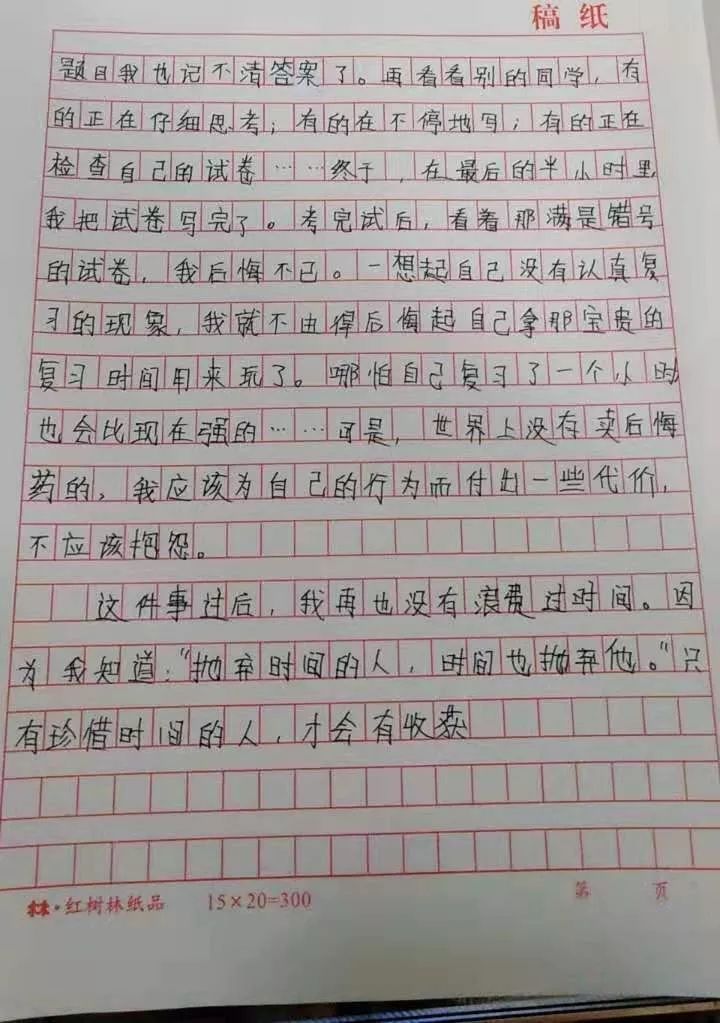 稿纸
题目我也记不清答案了。再看看别的同学，有
的正在仔细思考；有的在不停地写；有的正在
检查自己的试卷……终于，在最后的半小时里
我把试卷写完了。考完试后，看着那满是错号
的试卷，我后悔不已。一想起自己没有认真复
习的现象，我就不由得后悔起自己拿那宝贵的
复习时间用来玩了。哪怕自己复习了一个小时
也会比现在强的……可是，世界上没有卖后悔
药的，我应该为自己的行为而付出一些代价，
不应该抱怨。
这件事过后，我再也没有浪费过时间。因
为我知道："抛弃时间的人，时间也抛弃他。"只
有珍惜时间的人，才会有收获
林·红树林纸品 15×20=300 第 页